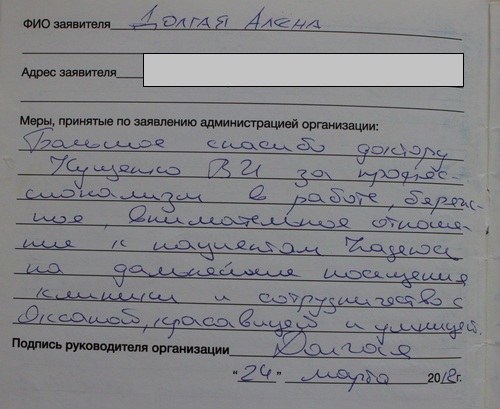 ФИО заявителя Долгая Алёна
Адрес заявителя
Меры, принятые по заявлению администрацией организации:
Большое спасибо доктору
Куценко В И за профес-
сионализм в работе, береж-
ное, внимательное отноше-
ние к пациентам Надеюсь
на дальнейшие посещения
клиники и сотрудничество с
Оксаной, красавицей и умницей.
Подпись руководителя организации Долгая
"24" марта 2018г.